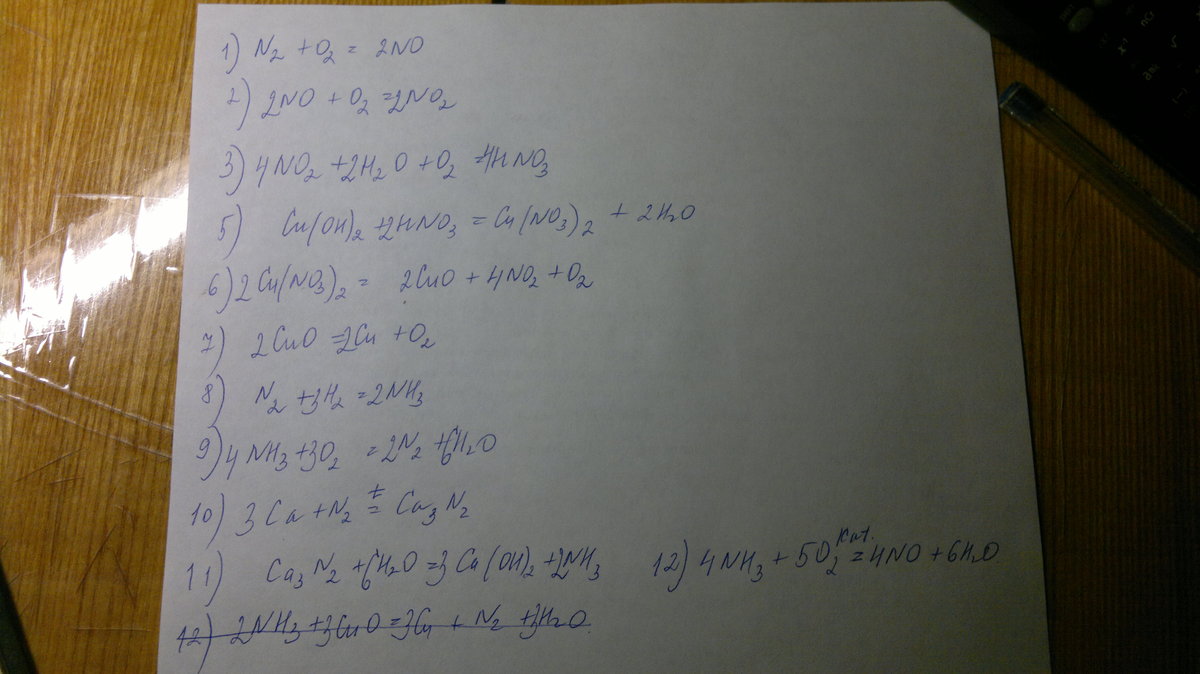 1) N₂ + O₂ = 2NO
2) 2NO + O₂ = 2NO₂
3) 4NO₂ + 2H₂O + O₂ = 4HNO₃
5) Cu(OH)₂ + 2HNO₃ = Cu(NO₃)₂ + 2H₂O
6) 2Cu(NO₃)₂ = 2CuO + 4NO₂ + O₂
7) 2CuO = 2Cu + O₂
8) N₂ + 3H₂ = 2NH₃
9) 4NH₃ + 3O₂ = 2N₂ + 6H₂O
10) 3Ca + N₂ =ᵗ Ca₃N₂
11) Ca₃N₂ + 6H₂O = 3Ca(OH)₂ + 2NH₃
12) 4NH₃ + 5O₂ =ᴷᵃᵗ· 4NO + 6H₂O
12) 2NH₃ + 3CuO = 3Cu + N₂ + 3H₂O